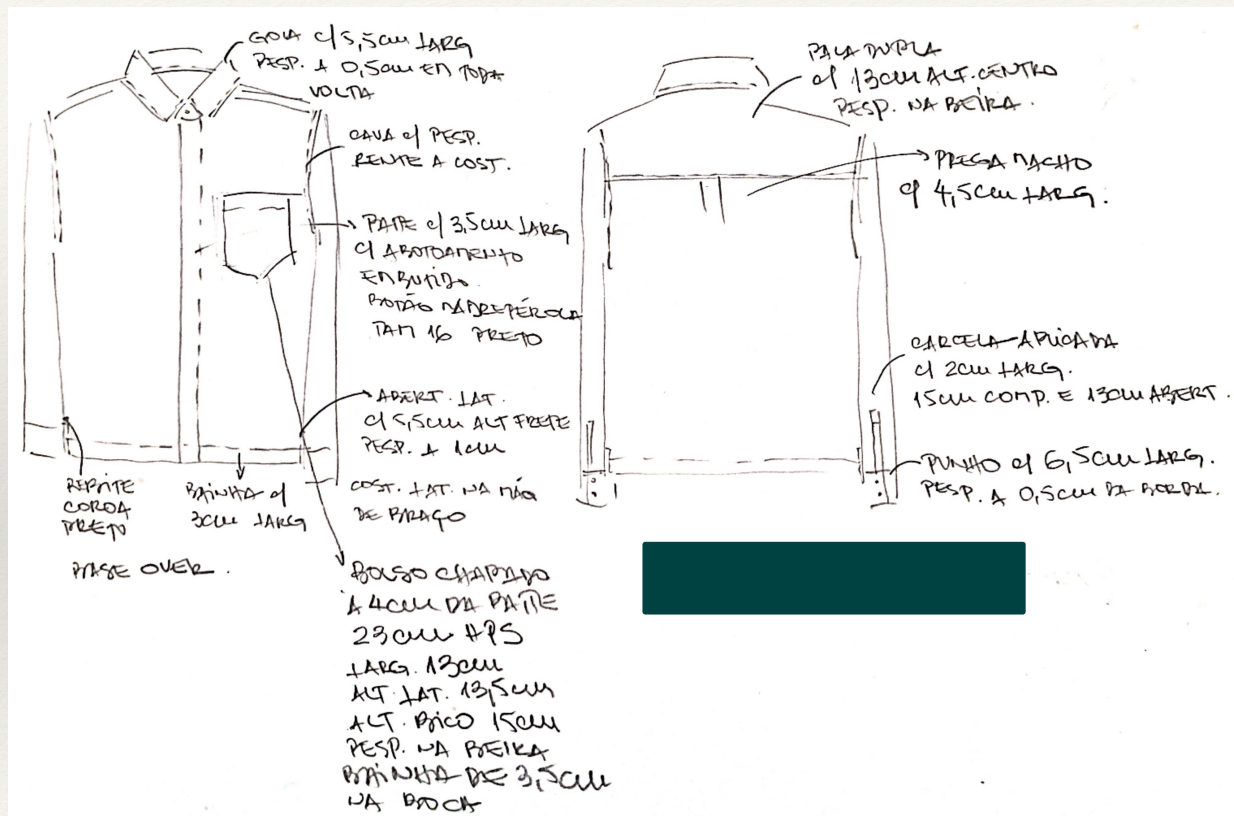 GOLA c/ 5,5cm LARG
PESP. A 0,5cm EM TODA
VOLTA
CAVA c/ PESP.
RENTE A COST.
PATE c/ 3,5cm LARG
c/ ABOTOAMENTO
EMBUTIDO.
BOTÃO MADREPÉROLA
TAM 16 PRETO
ABERT. LAT.
c/ 5,5cm ALT FRETE
PESP. A 1cm
COST. LAT. NA MÃO
DE BRAÇO
REBITE
COROA
PRETO
BAINHA c/
3cm LARG
BASE OVER.
BOLSO CHAPADO
A 4cm DA PATE
23cm APS
LARG. 13cm
ALT. LAT. 13,5cm
ALT. BICO 15cm
PESP. NA BEIRA
BAINHA DE 3,5cm
NA BOCA
PALA DUPLA
c/ 13cm ALT. CENTRO
PESP. NA BEIRA.
PREGA MACHO
c/ 4,5cm LARG.
CARCELA APLICADA
c/ 2cm LARG.
15cm COMP. E 13cm ABERT.
PUNHO c/ 6,5cm LARG.
PESP. A 0,5cm DA BORDA.